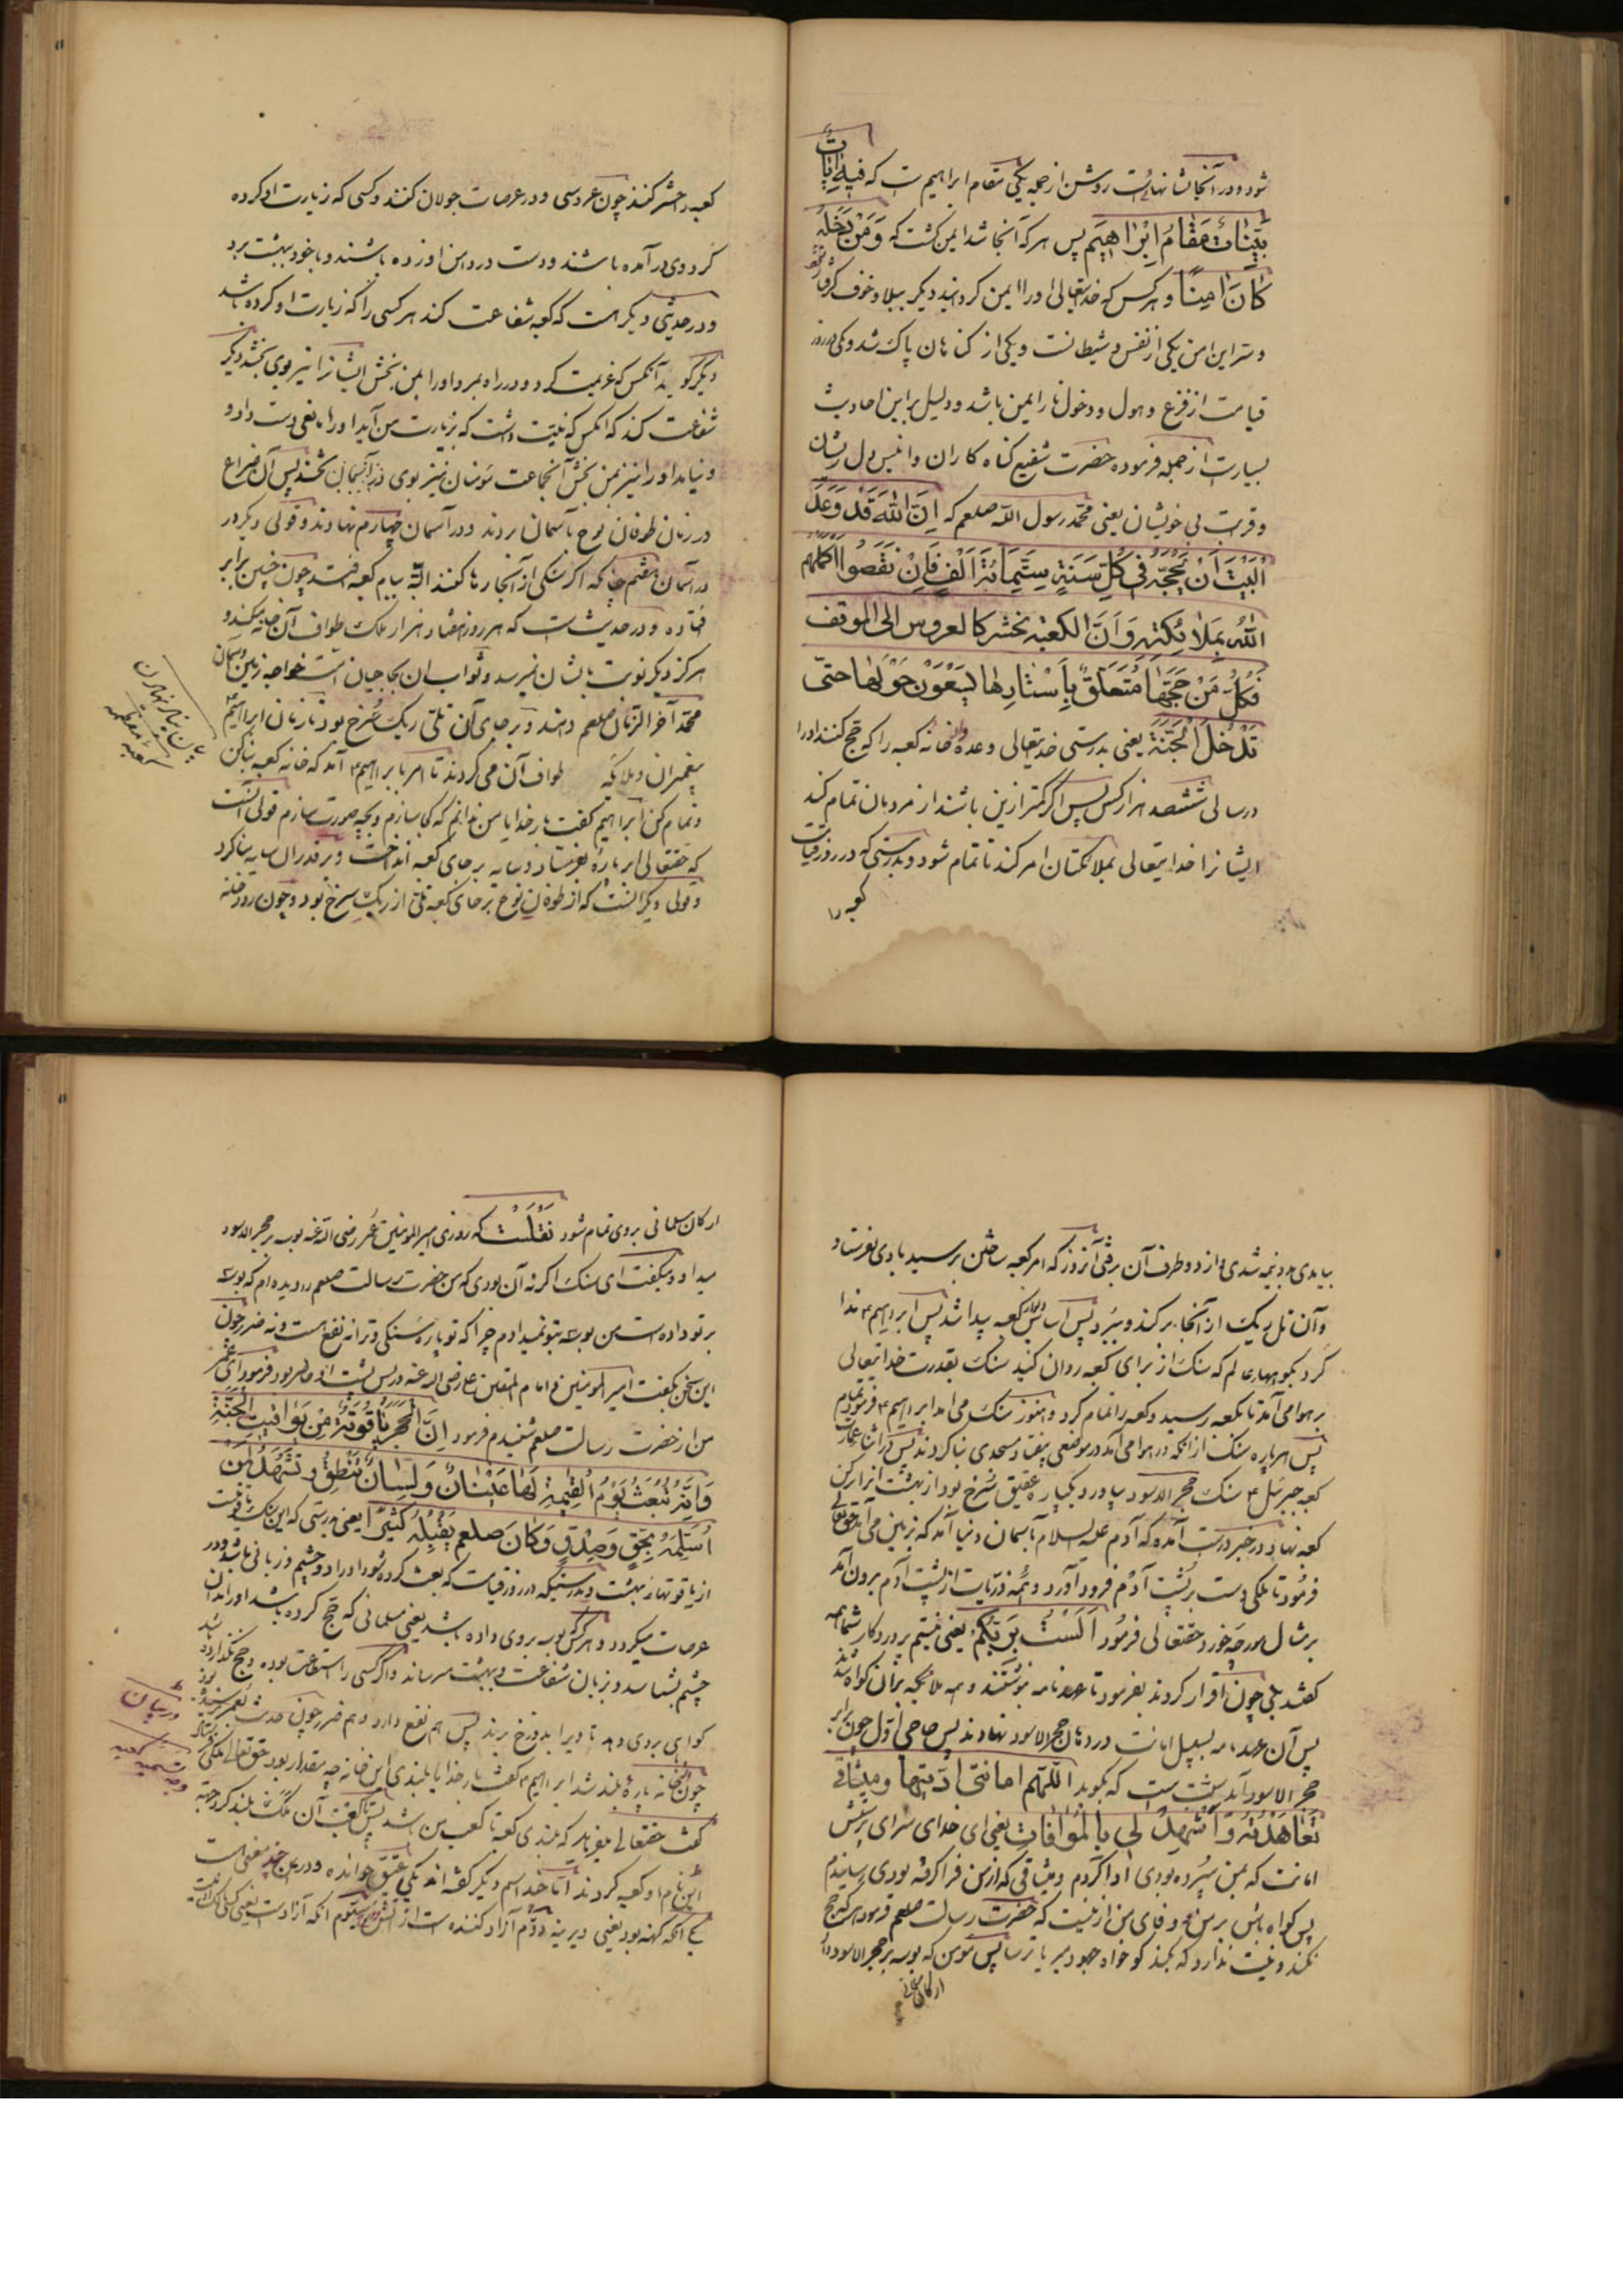 شود و در آنجا نشانهاست روشن از جمله یکی مقام ابراهیم ست که فیه ایات
بینات مقام ابراهیم پس هر که آنجا شد ایمن کشت که ومن دخله
کان امنا و هر کس که خدایتعالی او را ایمن کردانید دیکر ببلا و خوف کرفتار نشود
و سر این امن یکی از نفس و شیطانست و یکی از کناهان پاک شد و یکی در روز
قیامت از فزع و هول و دخول نار ایمن باشد و دلیل براین احادیث
بسیارست از جمله فرموده حضرت شفیع کناه کاران و انیس دل ریشان
و قربت بی خویشان یعنی محمد رسول الله صلعم که ان الله قد وعد
البیت ان یحجه فی کل سنة ستمائة الف فان نقصوا اکملهم
الله بملائکته وان الکعبه تحشر کالعروس الی الموقف
فکل من حجها متعلق باستارها یسعون حولها حتی
تدخل الجنة یعنی بدرستی خدایتعالی وعده داد خانه کعبه را که حج کنند او را
در سالی ششصد هزار کس پس اکر کمتر ازین باشند از مردمان تمام کند
ایشانرا خدایتعالی بملائکتان امر کند تا تمام شود و بدرستی که در روز قیامت
کعبه را
کعبه را حشر کنند چون عروسی و در عرصات جولان کنند و کسی که زیارت او کرده
کرد وی در آمده باشند و دست در دامن او زده باشند و با خود ببهشت برد
و در حدیثی دیکر است که کعبه شفاعت کند هر کسی را که زیارت او کرده باشد
دیکر کوید آنکس که عزیمت کرد و در راه بمرد او را بمن بخش ایشانرا نیز بوی بخشد دیکر
شفاعت کند که انکس که نیت داشت که بزیارت من آید او را مانعی دست داد و
و نیامد او را نیز بمن بخش آنجماعت مؤمنان نیز بوی بخشد پس آن ضراح
در زمان طوفان نوح بآسمان بردند و در آسمان چهارم نهادند و قولی دیکر در
در آسمان هفتم چنانکه اکر سنکی از آنجا رها کنند البته ببام کعبه افتد چون چنین برابر
فتاده و در حدیث است که هر روز هفتاد هزار ملک طواف آن خانه میکنند و
هرکز دیکر نوبت بایشان نمیرسد و ثواب ان بحاجیان است خواجه زمین و آسمان
محمد آخر الزمان صلعم دهند و بر جای آن تلی ریک سرخ بود تا زمان ابراهیم
پیغمبران و ملائکه طواف آن می کردند تا امر بابراهیم آمد که خانه کعبه بنا کن
و تمام کن ابراهیم کفت بار خدایا من ندانم که کجا سازم و بچه صورت سازم قولی آنست
که حقتعالی ابر پاره بفرستاد و سایه بر جای کعبه انداخت و بر قدر ان سایه بنا کرد
و قولی دیکر آنست که از طوفان نوح بر جای کعبه تلی از ریک سرخ بود و چون روز خانه
بیان بنا نهادن
کعبه معظمه
بیامدی دو نیمه شدی و از دو طرف آن برفتی آنروز که امر کعبه ساختن برسید بادی بفرستاد
و آن تل ریک از آنجا برکند و ببرد پس اساس کعبه پیدا شد پس ابراهیم ندا
کرد بکوههای عالم که سنک از برای کعبه روان کنید سنک بقدرت خدایتعالی
بر هوا می آمد تا بکعبه رسید و کعبه را تمام کرد و هنوز سنک می امد ابراهیم فرمود تمام
پس هر پاره سنک از انکه در هوا می آمد در موضعی بیفتاد مسجدی بنا کردند پس در اثنا عمارت
کعبه جبرئیل سنک حجر الاسود بیاورد یکپاره عقیق سرخ بود از بهشت انرا در رکن
کعبه نهاد در خبر درست آمده که آدم علیه السلام بآسمان دنیا آمد که بزمین می آمد حق تعالی
فرمود تا ملکی دست بر پشت آدم فرود آورد و همه ذریات از پشت آدم برون آمد
بر مثال مورچه خورد حقتعالی فرمود الست بربکم یعنی نیستم پروردکار شما همه
کفتند بلی چون اقرار کردند بفرمود تا عهد نامه نوشتند و همه ملائکه برآن کواه شدند
پس آن عهدنامه بسبیل امانت در دهان حجر الاسود نهادند پس حاجی اول چون برابر
حجر الاسود آید سنت ست که بکوید اللهم امانتی ادیتها ومیثاقی
تعاهدته واشهد لی بالموافات یعنی ای خدای سزای پرستش
امانت که بمن سپرده بودی ادا کردم و میثاقی که از من فرا کرفته بودی رسانیدم
پس کواه باش بر من و وفای من از نیست که حضرت رسالت صلعم فرمود هر که حج
نکند و نیت ندارد که بکند کو خواه جهود میر یا ترسا پس مومن که بوسه بر حجر الاسود داد
ارکان مسلمانی
ارکان مسلمانی بروی تمام شود نقلست که روزی امیر المومنین عمر رضی الله عنه بوسه بر حجر الاسود
میداد و میکفت ای سنک اکر نه آن بودی که من حضرت رسالت صلعم را دیده ام که بوسه
بر تو داده است من بوسه بتو نمیدادم چرا که تو پاره سنکی و ترا نه نفع است و نه ضرر چون
این سخن بکفت امیر المومنین و امام المتقین علی رضی الله عنه در پس پشت او حاضر بود فرمود ای عمر
من از حضرت رسالت صلعم شنیدم فرمود ان الحجر یاقوتة من یواقیت الجنة
وانه یبعث یوم القیمة لها عینان ولسان تنطق و تشهد لمن
استلمه بحق وصدق وکان صلعم یقبله کثیرا یعنی بدرستی که این سنک یاقوتیست
از یاقوتهاء بهشت و بدرستیکه در روز قیامت که بعث کرده شود او را دو چشم و زبانی باشد و در
عرصات میکردد و هر کس بوسه بروی داده باشد یعنی مسلمانی که حج کرده باشد او را بدان
چشم بشناسد و بزبان شفاعت و ببهشت میرساند و اکر کسی را استطاعت بوده و حج نکذارده باشد
کواهی بروی دهد تا ویرا بدوزخ برند پس هم نفع دارد و هم ضرر چون
چون خانه پاره بلند شد ابراهیم کفت بار خدایا بلندی این خانه چه مقدار بود حق تعالی ملکی فرستاد
کفت حقتعالی میفرماید که بلندی کعبه تا کعب من باشد پس تا کعب آن ملک بلند کرد
این نام او کعبه کردند اما چند اسم دیکر کفته اند یکی عتیق خوانده و در عتق چند معنی است
یکی آنکه کهنه بود یعنی دیرینه دوم آزاد کننده ست از آتش سیوم آنکه آزادست یعنی کسی مالک او نیست
در بیان
وجه تسمیه کعبه